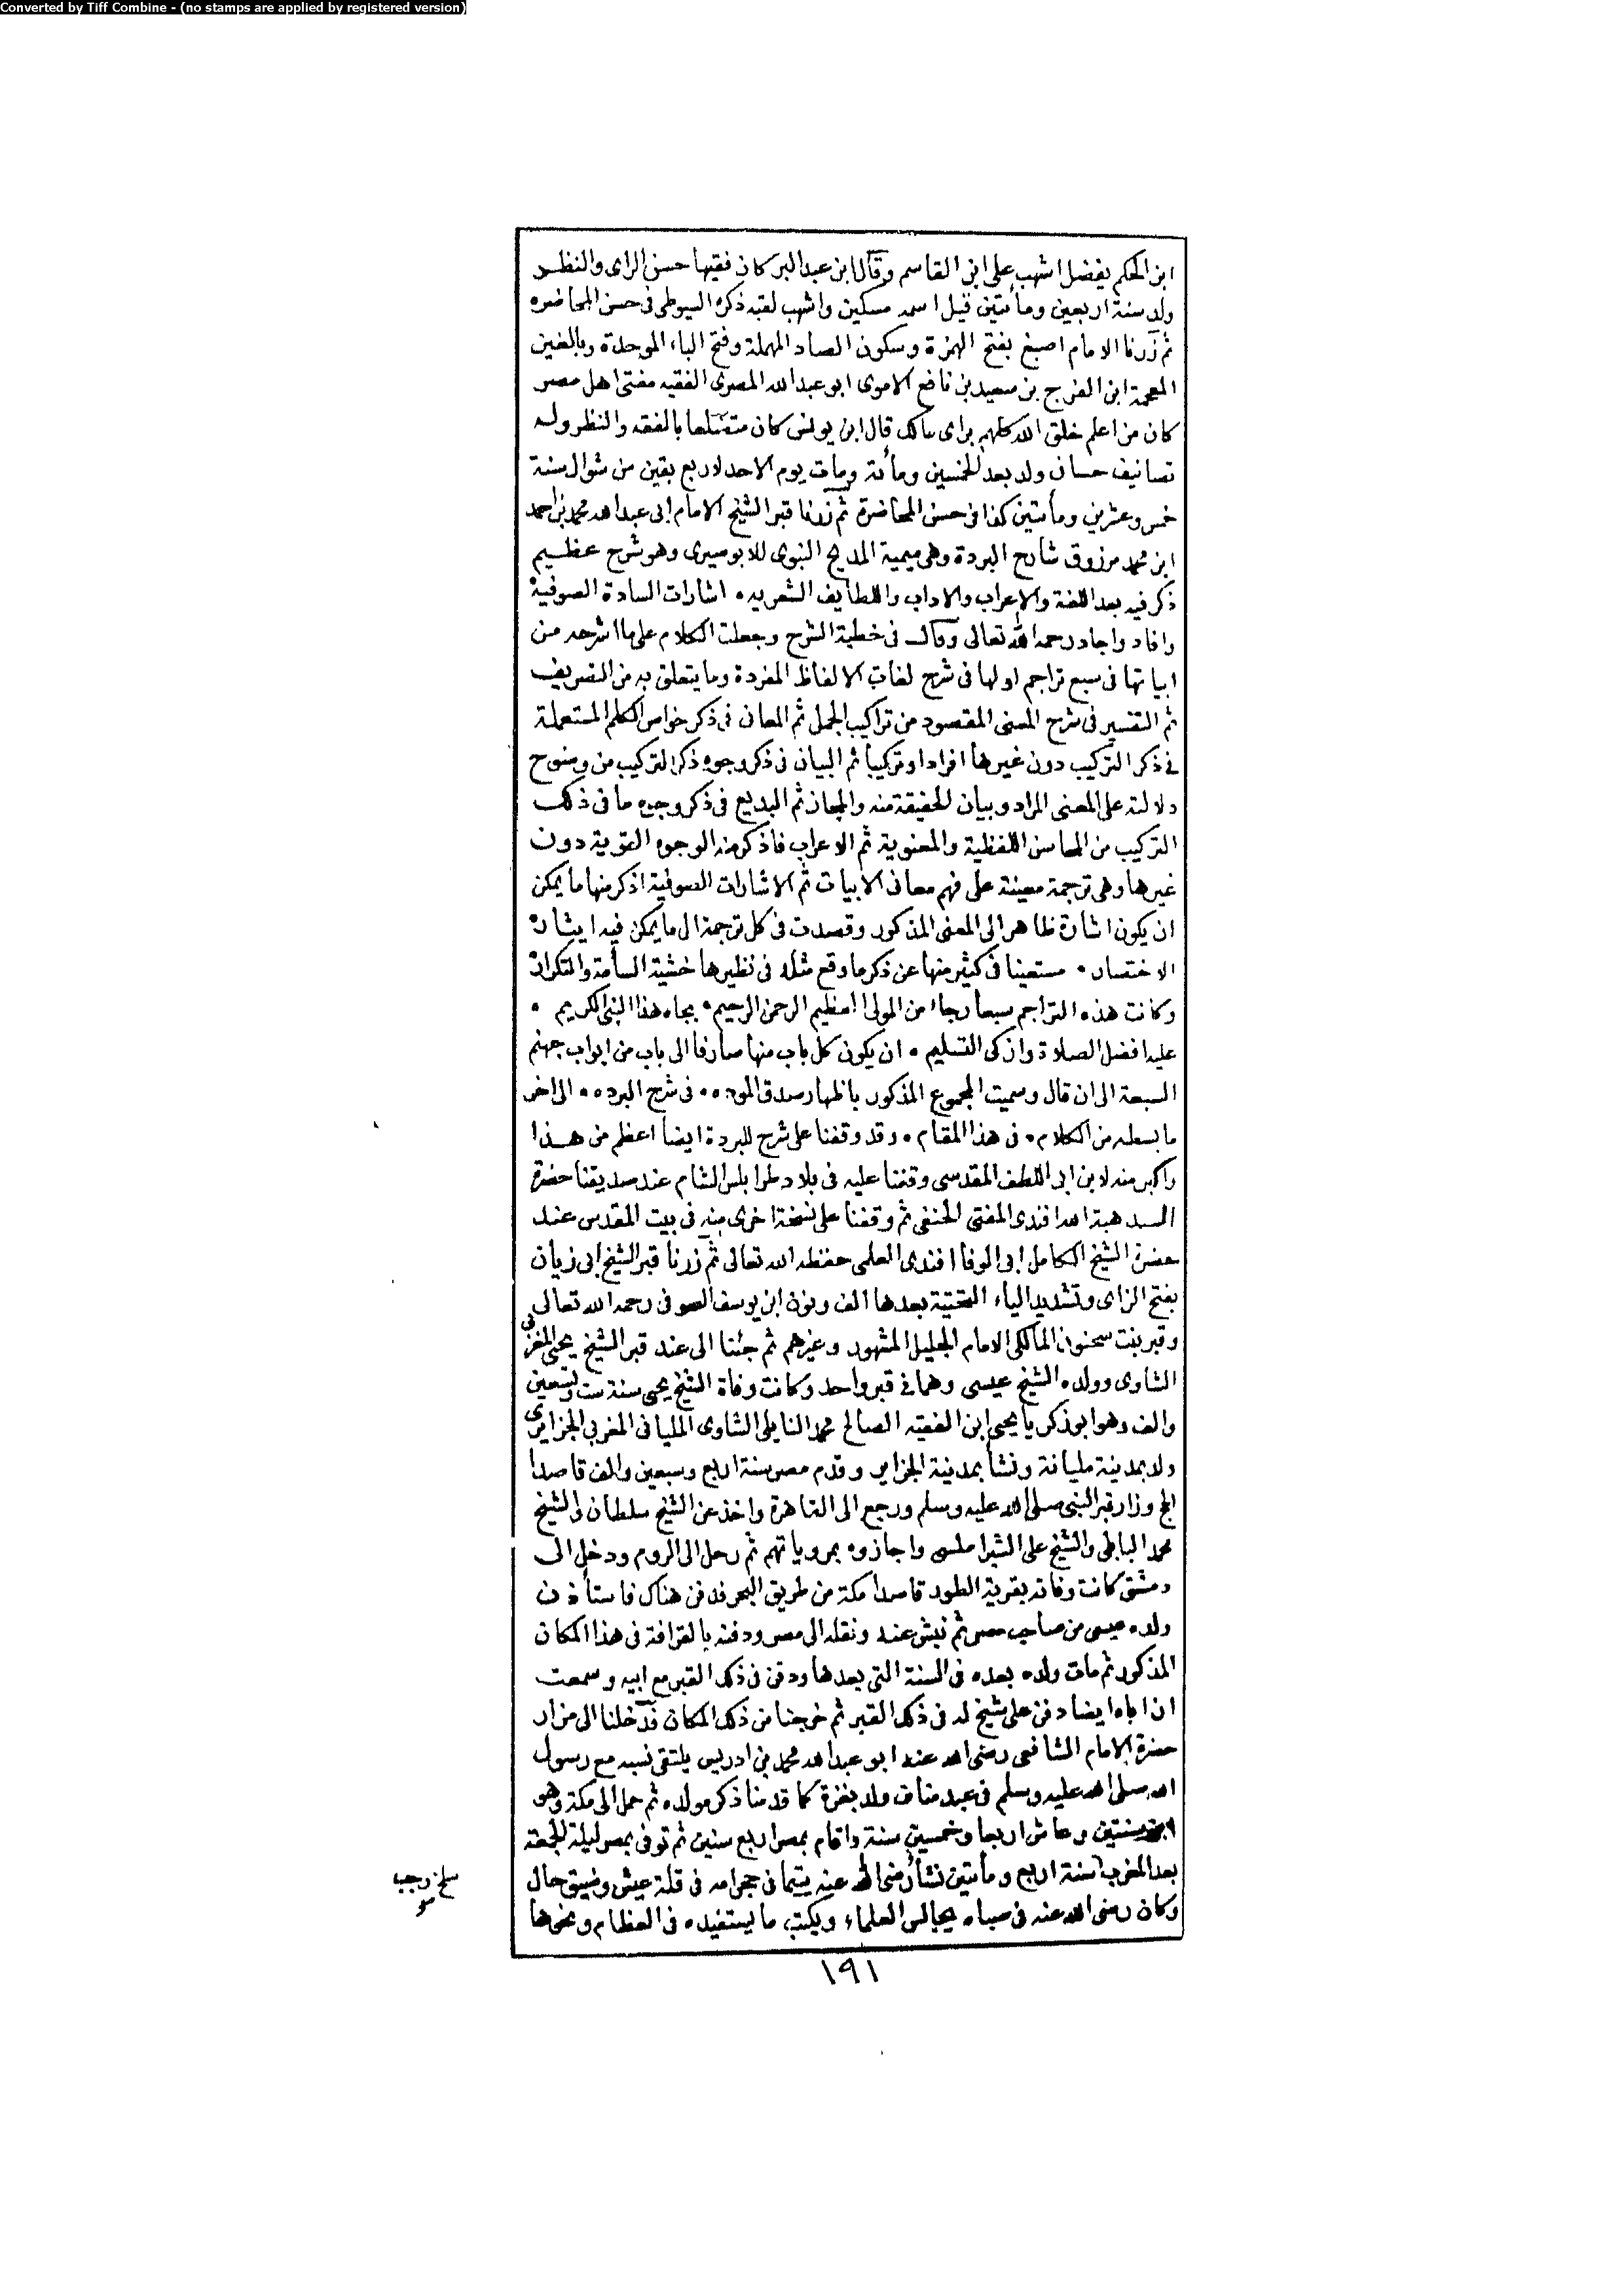 Converted by Tiff Combine - (no stamps are applied by registered version)
ابن الحكم يفضل اشهب على ابن القاسم وقال ابن عبد البر كان فقيها حسن الراى والنظر
ولد سنة اربعين ومأتين قيل اسمه مسكين واشهب لقبه ذكره السيوطى فى حسن المحاضره
ثم زرنا الامام اصبغ بفتح الهمزة وسكون الصاد المهملة وفتح الباء الموحدة وبالغين
المعجمة ابن الفرج بن سعيد بن نافع الاموى ابو عبد الله المصرى الفقيه مفتى اهل مصر
كان من اعلم خلق الله كلهم براى مالك قال ابن يونس كان متضلعا بالفقه والنظر وله
تصانيف حسان ولد بعد الخمسين ومأئة ومات يوم الاحد لاربع بقين من شوال سنة
خمس وعشرين ومأتين كذا فى حسن المحاضرة ثم زرنا قبر الشيخ الامام ابى عبد الله محمد بن احمد
ابن محمد مرزوق شارح البردة وهى ميمية المديح النبوى للابوصيرى وهو شرح عظيم
ذكر فيه بعد اللغة والاعراب والاداب واللطايف الشعريه • اشارات السادة الصوفية
وافاد واجاد رحمه الله تعالى وقال فى خطبة الشرح وجعلت الكلام على ما اشرحه من
ابياتها فى سبع تراجم اولها فى شرح لغات الالفاظ المفردة وما يتعلق به من التصريف
ثم التفسير فى شرح المعنى المقصود من تراكيب الجمل ثم المعان فى ذكر خواص الكلم المستعملة
فى ذكر التركيب دون غيرها افرادا وتركيبا ثم البيان فى ذكر وجوه ذكر التركيب من وضوح
دلالته على المعنى المراد وبيان الحقيقة منه والمجاز ثم البديع فى ذكر وجوه ما فى ذلك
التركيب من المحاسن اللفظية والمعنوية ثم الاعراب فاذكر منه الوجوه القوية دون
غيرها وهى ترجمة معينة على فهم معانى الابيات ثم الاشارات الصوفية اذكر منها ما يمكن
ان يكون اشارة ظاهر الى المعنى المذكور وقصدت فى كل ترجمة الى ما يمكن فيه ايثار
الاختصار • مستعينا فى كثير منها عن ذكر ما وقع مثله فى نظيرها خشية السأمة والتكرار
وكانت هذه التراجم سبعا رجاء من المولى العظيم الرحمن الرحيم • بجاه هذا النبى الكريم •
عليه افضل الصلاة وازكى التسليم • ان يكون كل باب منها صارفا الى باب من ابواب جهنم
السبعة الى ان قال وسميت المجموع المذكور باظهار صدق الموده • فى شرح البرده • الى اخر
ما بسطه من الكلام • فى هذا المقام • وقد وقفنا على شرح للبردة ايضا اعظم من هذا
واكبر منه لابن ابى اللطف المقدسى وقفنا عليه فى بلاد طرابلس الشام عند صديقنا حضرة
السيد هبة الله افندى المفتى الحنفى ثم وقفنا على نسخة اخرى منه فى بيت المقدس عند
حضرة الشيخ الكامل ابى الوفا افندى العلمى حفظه الله تعالى ثم زرنا قبر الشيخ ابى زيان
بفتح الزاى وتشديد الياء التحتية بعدها الف ونون ابن يوسف الصوفى رحمه الله تعالى
وقبر بنت سحنون المالكى الامام الجليل المشهور وغيرهم ثم جئنا الى عند قبر الشيخ يحيى المغربى
الشاوى وولده الشيخ عيسى وهما فى قبر واحد وكانت وفاة الشيخ يحيى سنة ست وتسعين
والف وهو ابو زكريا يحيى ابن الفقيه الصالح محمد النايلى الشاوى المليانى المغربى الجزايرى
ولد بمدينة مليانة ونشأ بمدينة الجزاير وقدم مصر سنة اربع وسبعين والف قاصدا
الحج وزار قبر النبى صلى الله عليه وسلم ورجع الى القاهرة واخذ عن الشيخ سلطان والشيخ
محمد البابلى والشيخ على الشبراملسى واجازوه بمروياتهم ثم رحل الى الروم ودخل الى
دمشق كانت وفاته بقرية الطور قاصدا مكة من طريق البحر فدفن هناك فاستأذن
ولده عيسى من صاحب مصر ثم نبش عنه ونقله الى مصر ودفنه بالقرافة فى هذا المكان
المذكور ثم مات ولده بعده فى السنة التى بعدها ودفن فى ذلك القبر مع ابيه وسمعت
ان اباه ايضا دفن على شيخ له فى ذلك القبر ثم خرجنا من ذلك المكان فدخلنا الى مزار
حضرة الامام الشافعى رضى الله عنه ابو عبد الله محمد بن ادريس يلتقى نسبه مع رسول
الله صلى الله عليه وسلم فى عبد مناف ولد بغزة كما قدمنا ذكر مولده ثم حمل الى مكة وهو
ابن سنتين وعاش اربعا وخمسين سنة واقام بمصر اربع سنين ثم توفى بمصر ليلة الجمعة
بعد المغرب سنة اربع ومأتين نشأ رضى الله عنه يتيما فى حجر امه فى قلة عيش وضيق حال
وكان رضى الله عنه فى صباه يجالس العلماء ويكتب ما يستفيده فى العظام ونحوها
سلخ رجب
١٩١